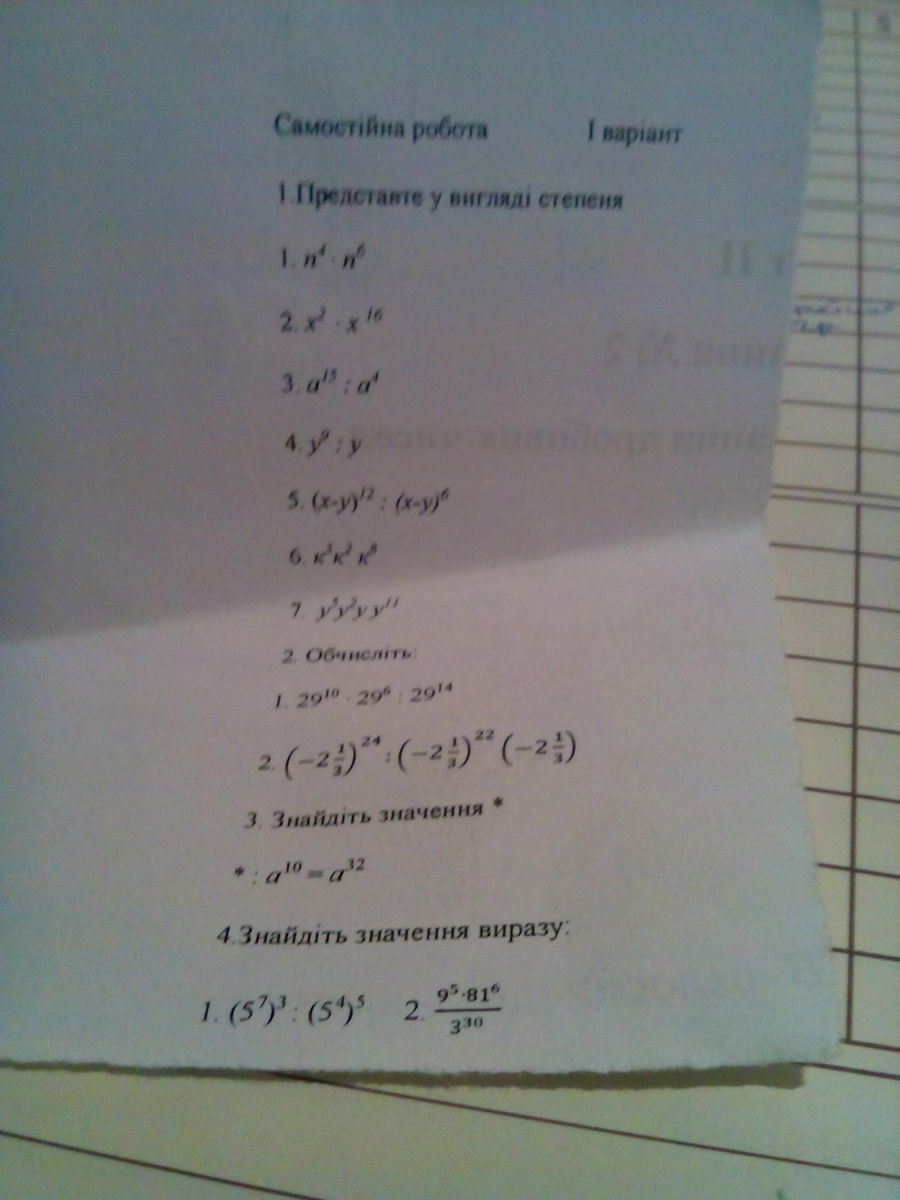 Самостійна робота I варіант
1.Представте у вигляді степеня
1. n⁴ · n⁶
2. x² · x¹⁶
3. a¹⁵ : a⁴
4. y⁹ : y
5. (x-y)¹² : (x-y)⁶
6. к³к² к⁸
7. y⁵y²y y¹¹
2. Обчисліть:
1. 29¹⁰ · 29⁶ : 29¹⁴
2. (−2⅓)²⁴ : (−2⅓)²² (−2⅓)
3. Знайдіть значення *
* : a¹⁰ = a³²
4.Знайдіть значення виразу:
1. (5⁷)³ : (5⁴)⁵ 2. 9⁵·81⁶/3³⁰